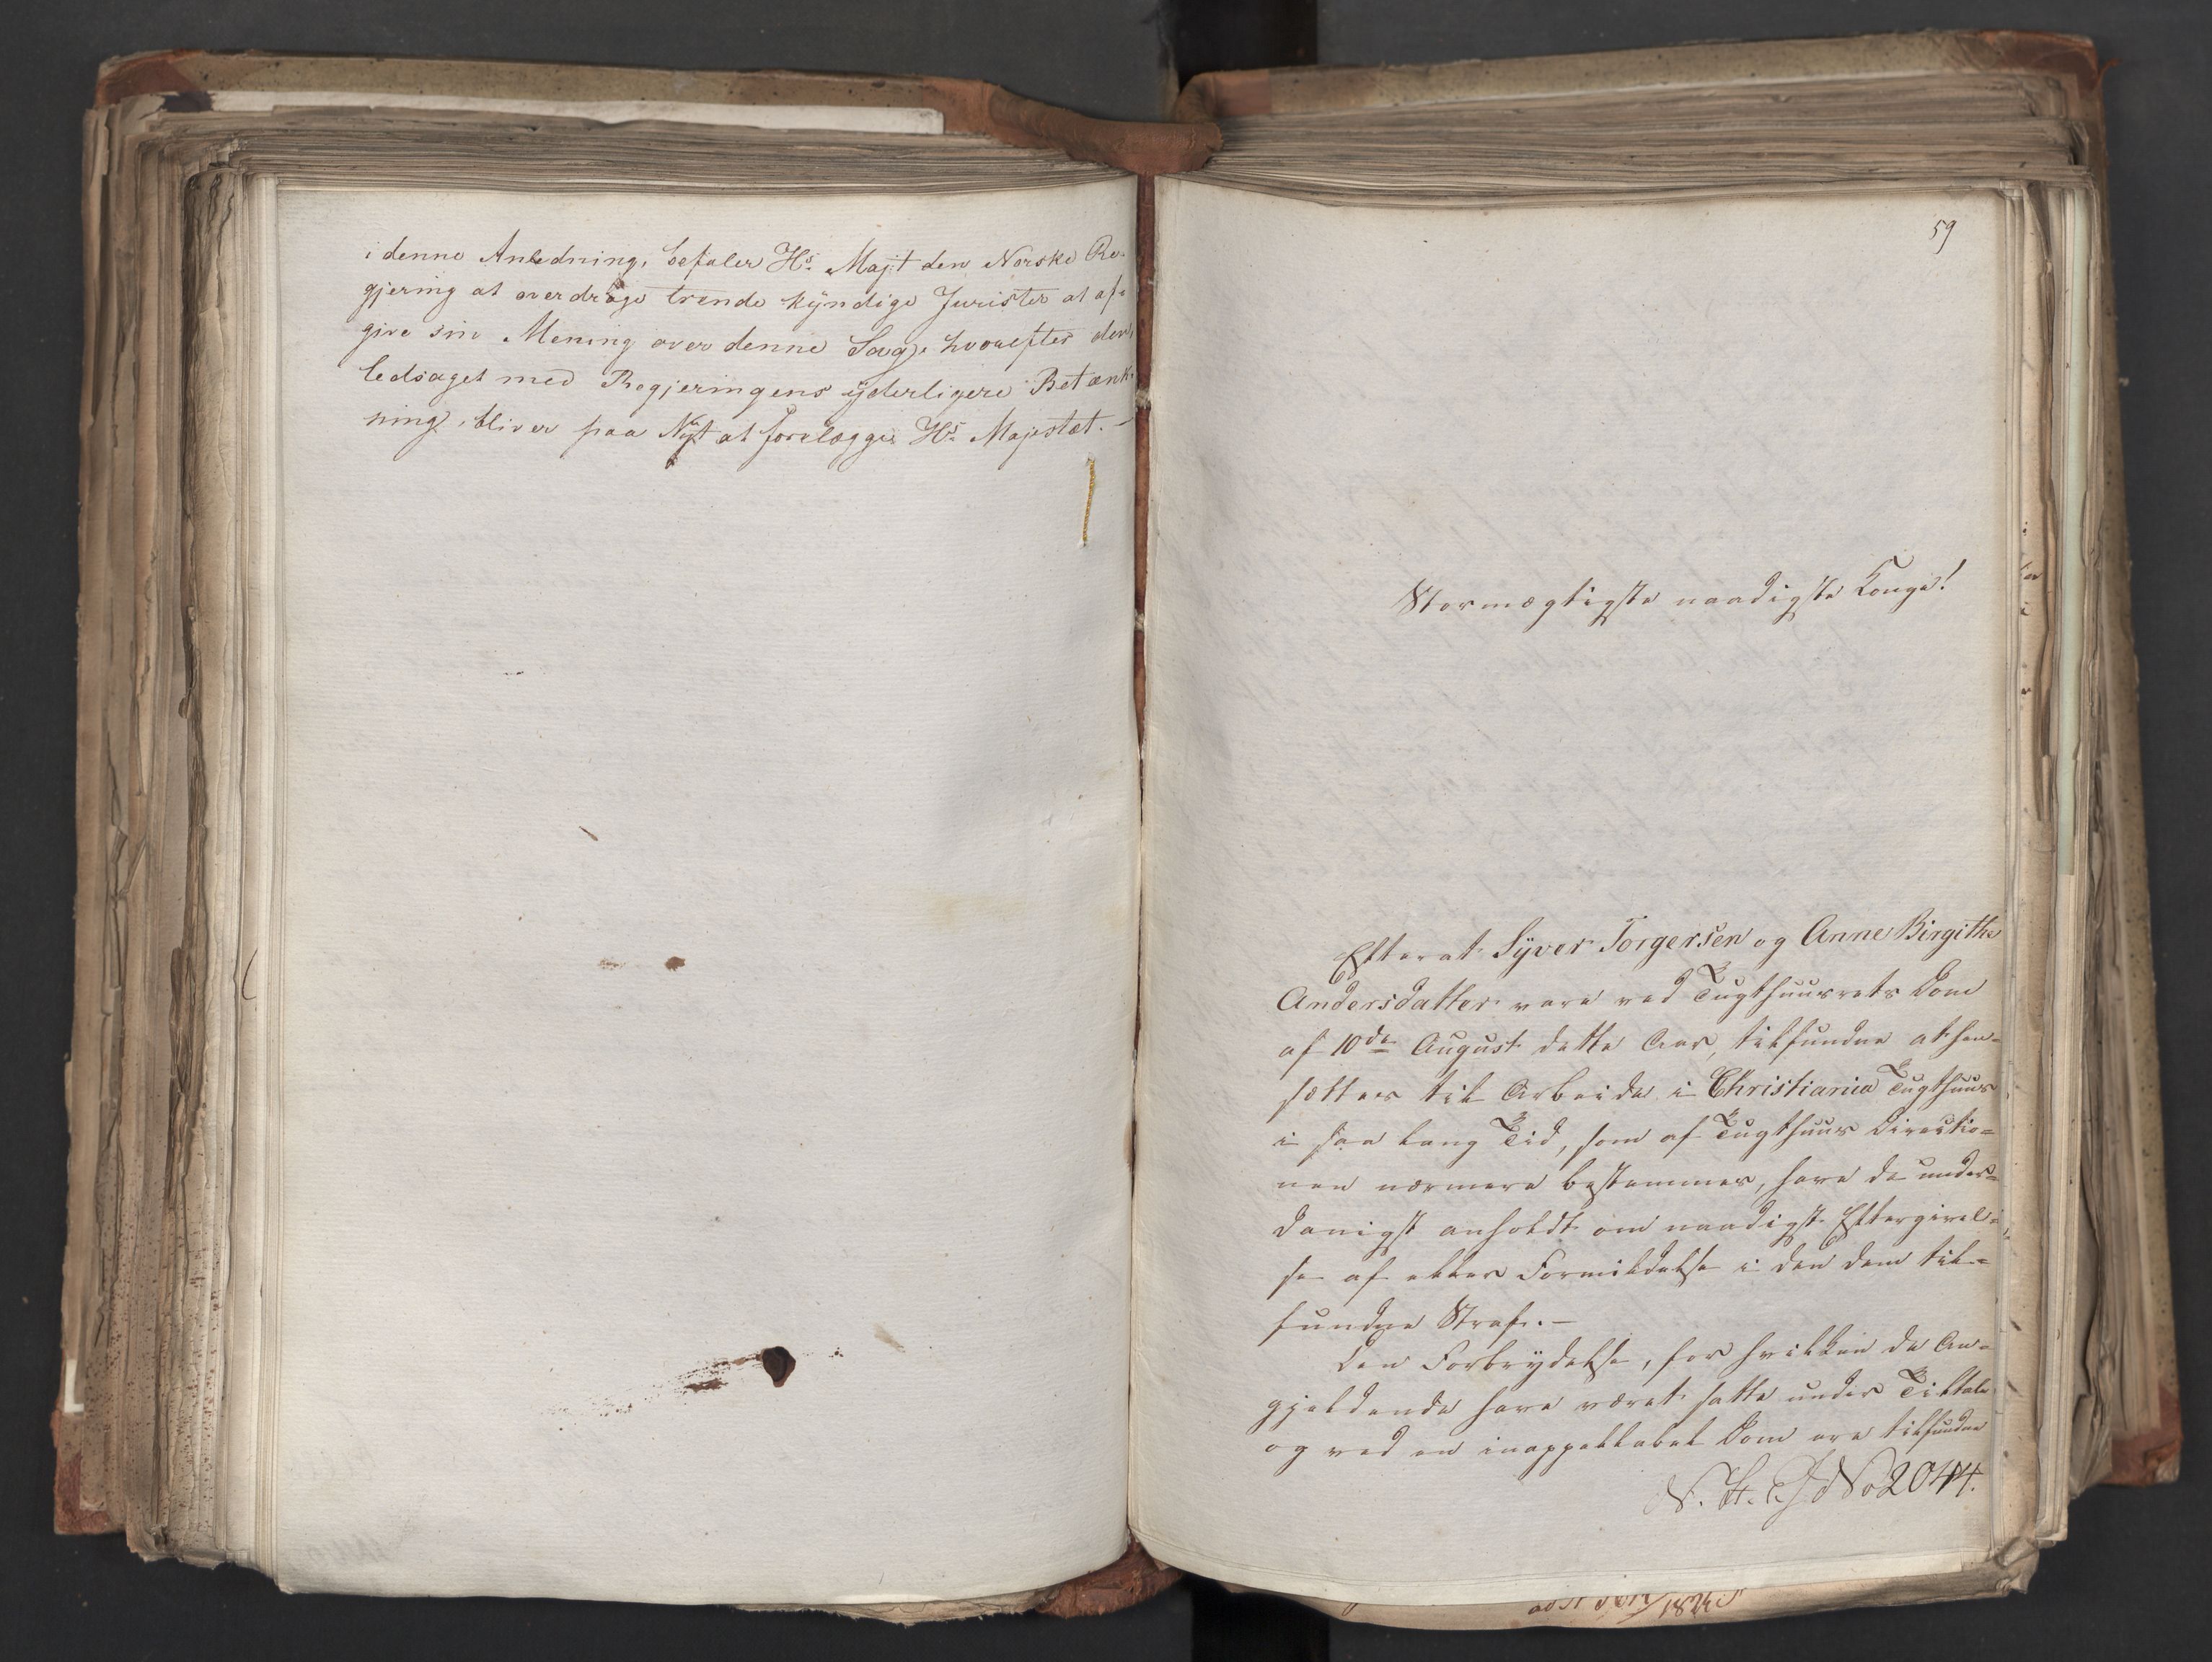 i denne Anledning, befaler Hs. Majt den Norske Re-
gjering at overdrage trende kyndige Jurister at af-
give sin Mening over denne Sag, hvorefter den,
ledsaget med Regjeringens yderligere Betænk-
ning, bliver paa Nyt at forelægges Hs. Majestæt.
59
Stormægtigste naadigste Konge!
Efterat Syver Torgersen og Anne Birgithe
Andersdatter vare ved Tugthuusrets Dom
af 10de August dette Aar, tilfundne at hen-
sættes til Arbeide i Christiania Tugthuus
i saa lang Tid, som af Tugthuus Directio-
nen nærmere bestemmes, have de under-
danigst anholdt om naadigst Eftergivel-
se af eller Formildelse i den dem til-
fundne Straf. —
Den Forbrydelse, for hvilken de An-
gjeldende have været satte under Tiltale
og ved en inappellabel Dom ere tilfundne
No 2044.